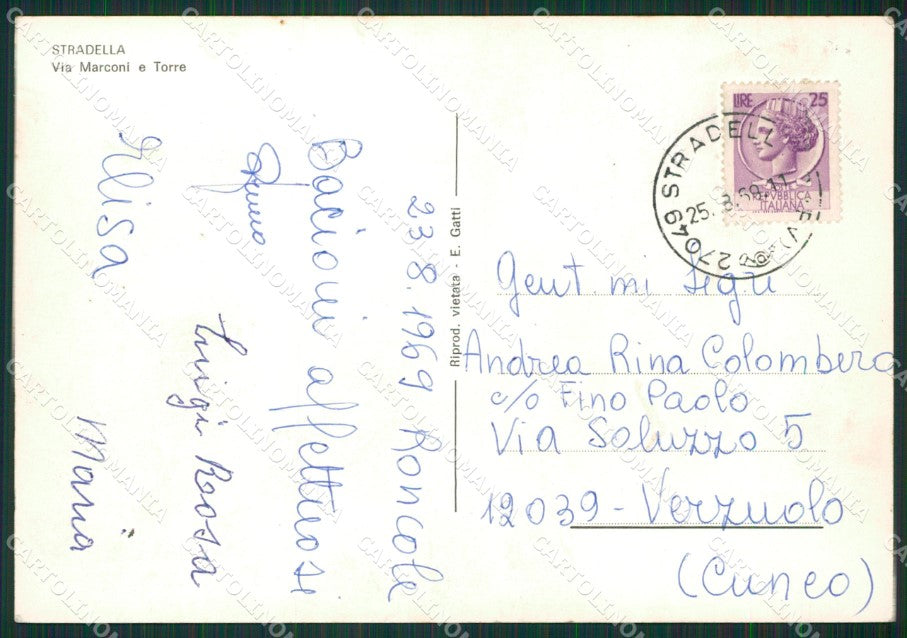 STRADELLA
Via Marconi e Torre
23.8.1969 Roncole
Bacioni affettuosi
Luigi Rosa
Elisa
Maria
Riprod. vietata - E. Gatti
LIRE 25
REPVBBLICA
ITALIANA
27049 STRADELLA
25.8.69.11
Gent.mi Sigri
Andrea Rina Colombero
c/o Fino Paolo
Via Saluzzo 5
12039 - Verzuolo
(Cuneo)
CARTOLINOMANIA